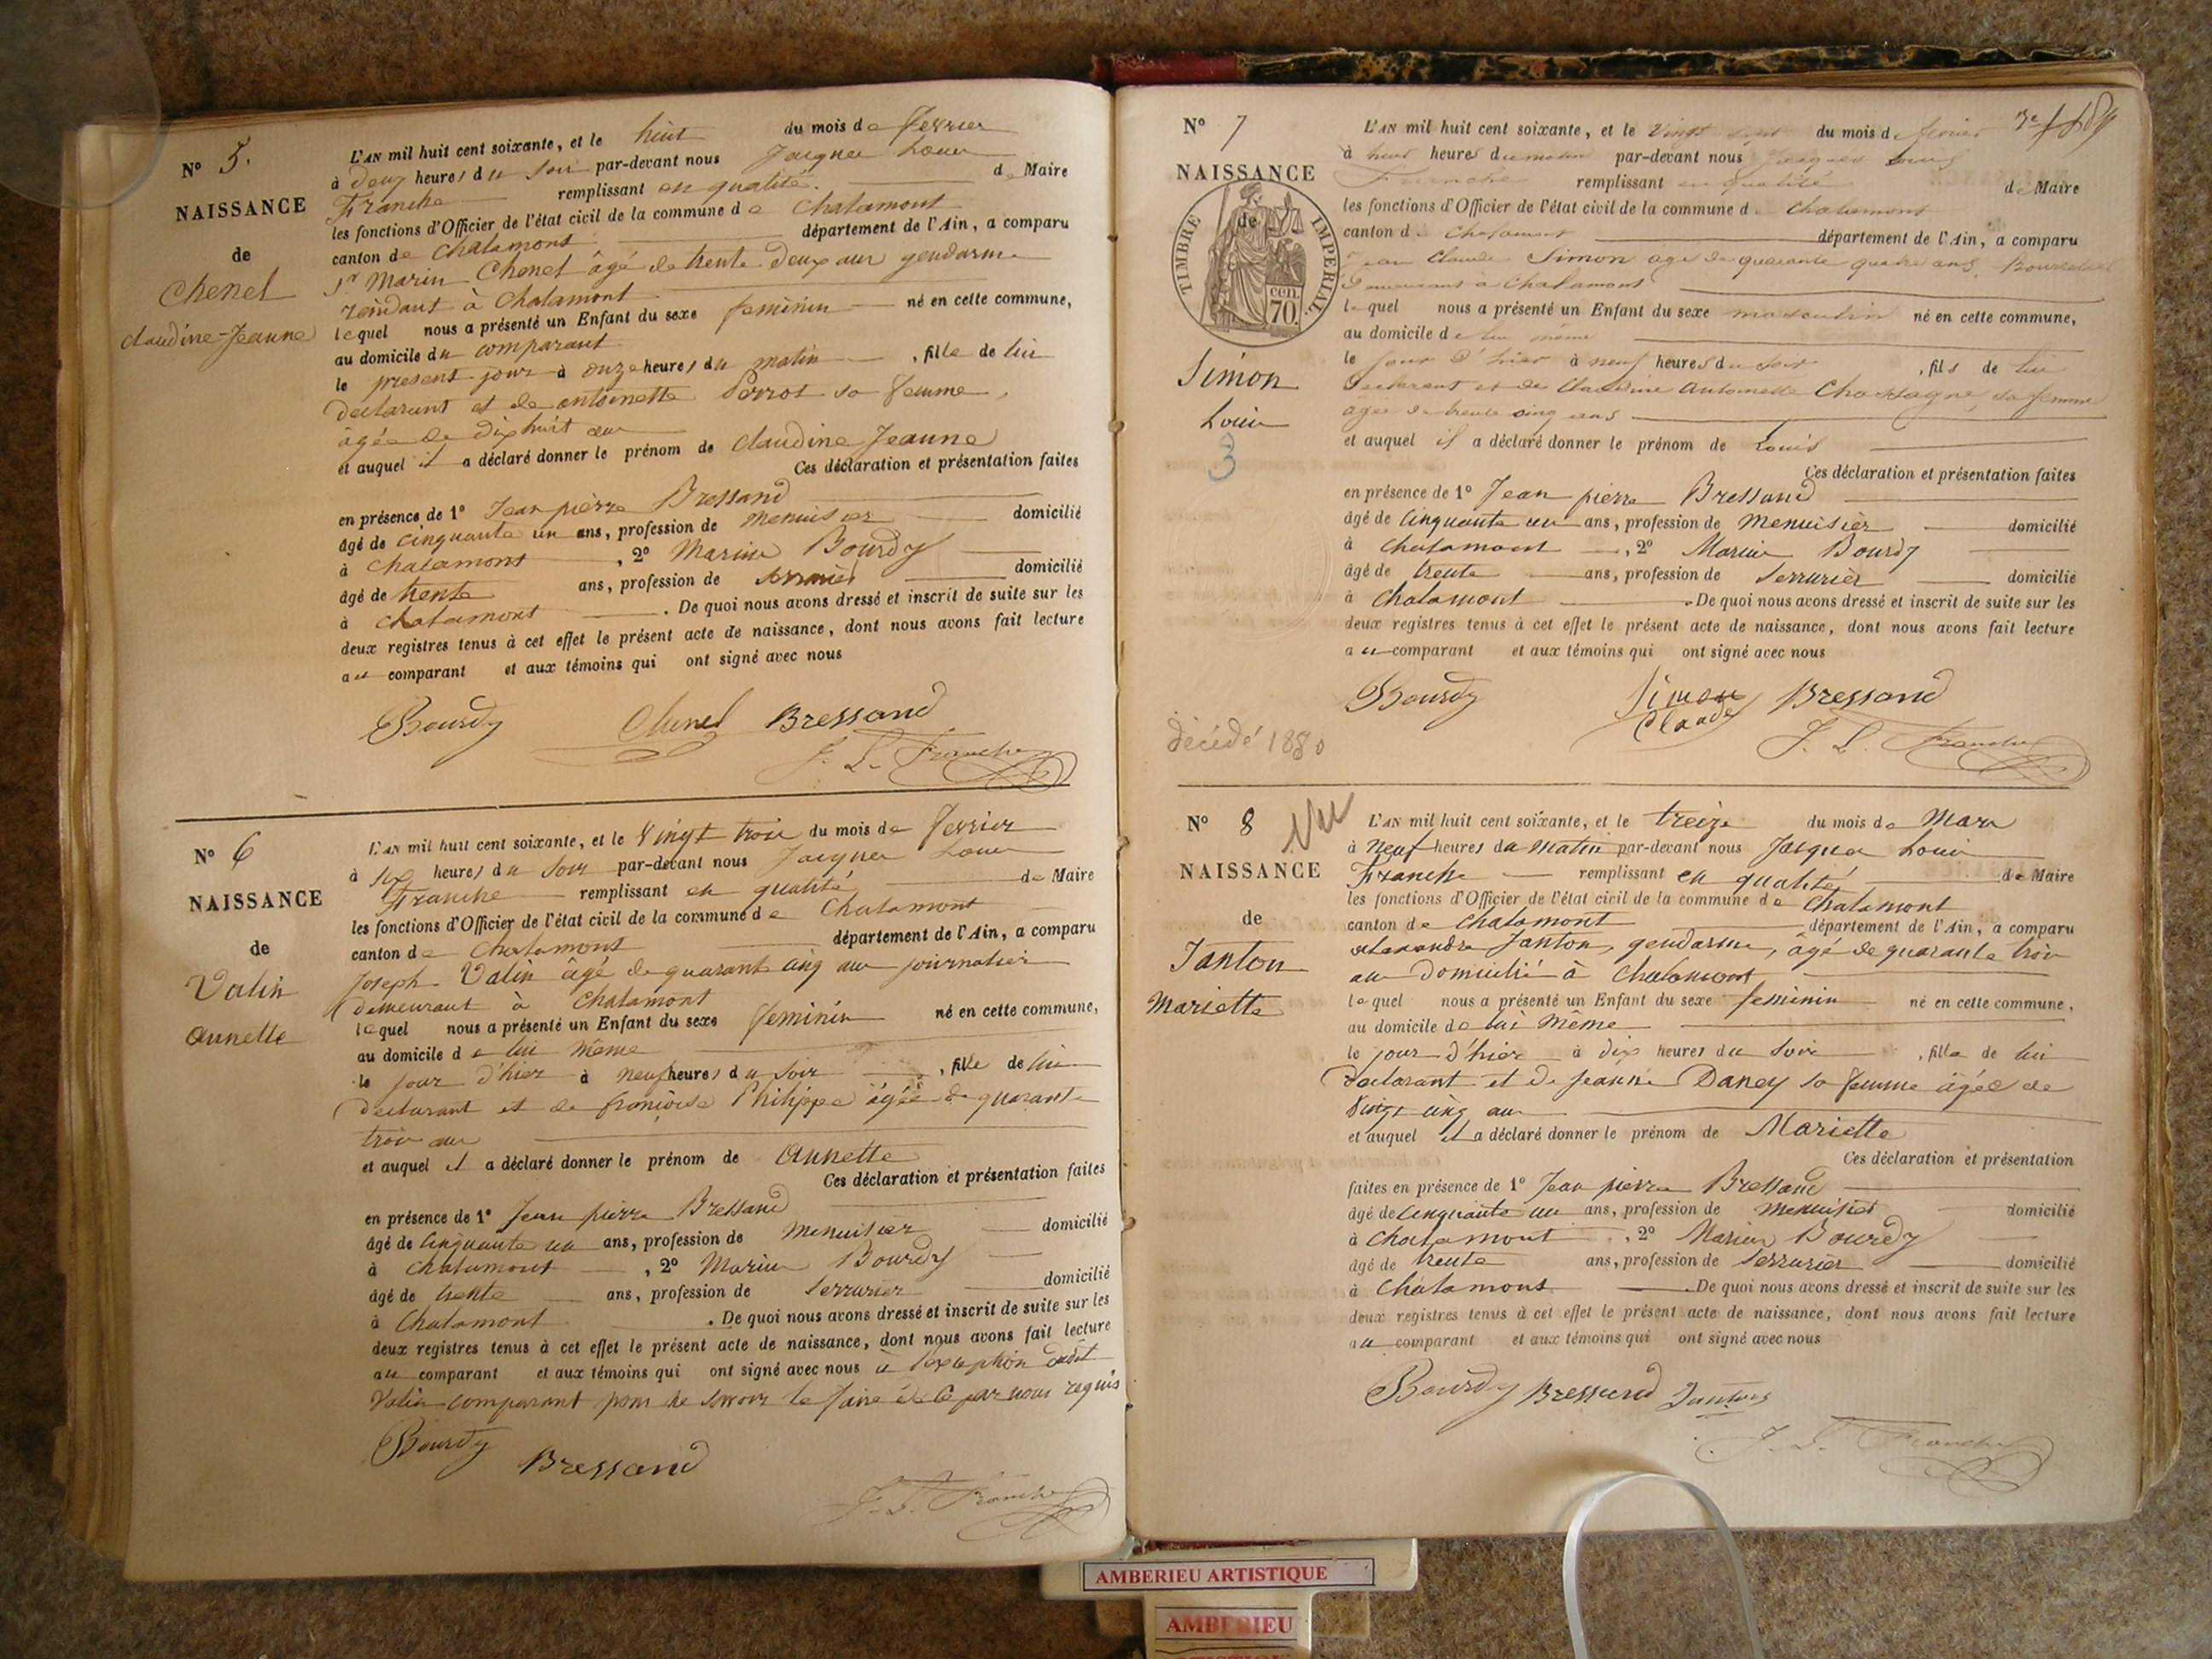 N° 5.
NAISSANCE
de
Chenel
Claudine-Jeanne
L'AN mil huit cent soixante, et le huit du mois de fevrier
à deux heures du soir par-devant nous Jacques Louis
Franche remplissant en qualité. de Maire
les fonctions d'Officier de l'état civil de la commune de Chalamont
canton de Chalamont département de l'Ain, a comparu
Sr Marin Chenel âgé de trente deux ans gendarme
résidant à Chalamont
lequel nous a présenté un Enfant du sexe feminin né en cette commune,
au domicile du comparant
le present jour à onze heures du matin , fille de lui
declarant et de antoinette Perrot sa femme,
âgée de dix huit ans
et auquel il a déclaré donner le prénom de Claudine Jeanne
Ces déclaration et présentation faites
en présence de 1° Jean pierre Bressand
âgé de cinquante un ans, profession de menuisier domicilié
à Chalamont , 2° Marin Bourdy
âgé de trente ans, profession de serrurier domicilié
à Chalamont . De quoi nous avons dressé et inscrit de suite sur les
deux registres tenus à cet effet le présent acte de naissance, dont nous avons fait lecture
au comparant et aux témoins qui ont signé avec nous
Bourdy Chenel Bressand
J. L. Franche
N° 6
NAISSANCE
de
Valin
Annette
L'AN mil huit cent soixante, et le vingt trois du mois de fevrier
à six heures du soir par-devant nous Jacques Louis
Franche remplissant en qualité de Maire
les fonctions d'Officier de l'état civil de la commune de Chalamont
canton de Chalamont département de l'Ain, a comparu
Joseph Valin âgé de quarant cinq ans journalier
demeurant à Chalamont
lequel nous a présenté un Enfant du sexe feminin né en cette commune,
au domicile de lui même
le jour d'hier à neuf heures du soir , fille de lui
declarant et de françoise Philippe âgée de quarante
trois ans
et auquel il a déclaré donner le prénom de Annette
Ces déclaration et présentation faites
en présence de 1° Jean pierre Bressand
âgé de cinquante un ans, profession de menuisier domicilié
à Chalamont , 2° Marin Bourdy
âgé de trente ans, profession de serrurier domicilié
à Chalamont . De quoi nous avons dressé et inscrit de suite sur les
deux registres tenus à cet effet le présent acte de naissance, dont nous avons fait lecture
au comparant et aux témoins qui ont signé avec nous à l'exception dudit
Valin comparant pour ne savoir le faire de ce par nous requis
Bourdy
Bressand
J. L. Franche
N° 7
NAISSANCE
de
TIMBRE IMPERIAL
cen.
70.
Simon
Louis
3
décédé 1880
L'AN mil huit cent soixante, et le vingt sept du mois de fevrier
à huit heures du matin par-devant nous Jacques Louis
Franche remplissant en qualité de Maire
les fonctions d'Officier de l'état civil de la commune de Chalamont
canton de Chalamont département de l'Ain, a comparu
Jean Claude Simon âgé de quarante quatre ans,
demeurant à Chalamont
lequel nous a présenté un Enfant du sexe masculin né en cette commune,
au domicile de lui même
le jour d'hier à neuf heures du soir , fils de lui
declarant et de Claudine Antoinette Chassagne, sa femme
âgée de trente cinq ans
et auquel il a déclaré donner le prénom de Louis
Ces déclaration et présentation faites
en présence de 1° Jean pierre Bressand
âgé de cinquante un ans, profession de menuisier domicilié
à Chalamont , 2° Marin Bourdy
âgé de trente ans, profession de serrurier domicilié
à Chalamont . De quoi nous avons dressé et inscrit de suite sur les
deux registres tenus à cet effet le présent acte de naissance, dont nous avons fait lecture
au comparant et aux témoins qui ont signé avec nous
Bourdy Simon Bressand
Claude
J. L. Franche
N° 8 Vu
NAISSANCE
de
Janton
Mariette
L'AN mil huit cent soixante, et le treize du mois de Mars
à neuf heures du matin par-devant nous Jacques Louis
Franche remplissant en qualité de Maire
les fonctions d'Officier de l'état civil de la commune de Chalamont
canton de Chalamont département de l'Ain, a comparu
alexandre Janton, gendarme, âgé de quarante trois
ans domicilié à Chalamont
lequel nous a présenté un Enfant du sexe feminin né en cette commune,
au domicile de lui même
le jour d'hier à dix heures du soir , fille de lui
declarant et de Jeanne Daney sa femme âgée de
vingt cinq ans
et auquel il a déclaré donner le prénom de Mariette
Ces déclaration et présentation
faites en présence de 1° Jean pierre Bressand
âgé de cinquante un ans, profession de menuisier domicilié
à Chalamont , 2° Marin Bourdy
âgé de trente ans, profession de serrurier domicilié
à Chalamont . De quoi nous avons dressé et inscrit de suite sur les
deux registres tenus à cet effet le présent acte de naissance, dont nous avons fait lecture
au comparant et aux témoins qui ont signé avec nous
Bourdy Bressand Janton
J. L. Franche
AMBERIEU ARTISTIQUE
AMBERIEU